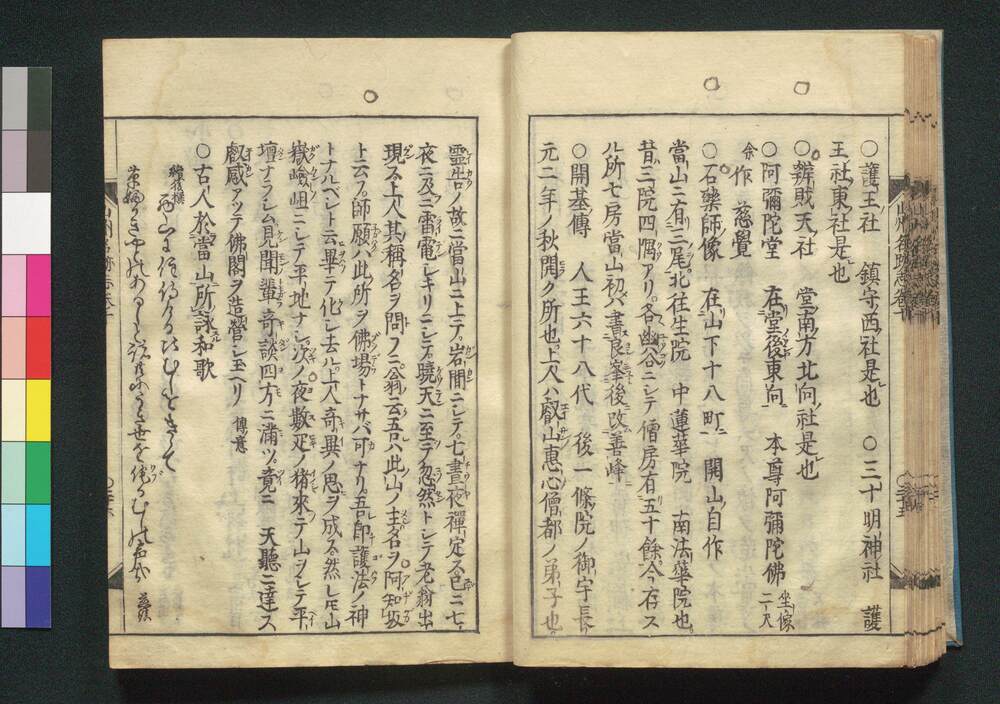 ○護王社 鎮守西社是也 ○三十明神社 護
王社東社是也
○辨財天社 堂南方北向社是也
○阿彌陀堂 在堂後東向 本尊阿彌陀佛 坐像二尺
余 作 慈覺
○石藥師像 在山下十八町 開山自作
當山ニ有三尾北往生院 中蓮華院 南法華院也
昔三院四隅アリ各幽谷ニシテ僧房有五十餘今存ス
ル所七房當山初ハ書良峯後改善峰
○開基傳 人王六十八代 後一條院ノ御宇長
元二年ノ秋開ク所也上人ハ叡山惠心僧都ノ弟子也
靈告ノ故ニ當山ニ上テ岩間ニシテ七晝夜禪定ス已ニ七
夜ニ及ニ雷電シキリニシテ曉天ニ至テ忽然トシテ老翁出
現ス上人其稱名ヲ問フニ翁云吾ハ此山ノ主名ヲ阿知坂
ト云フ師願ハ此所ヲ佛場トナサバ可ナリ吾即護法ノ神
トナルベシト云畢テ化シ去ル上人奇異ノ思ヲ成ス然レ𪜈山
嶽嶮岨ニシテ平地ナシ次ノ夜數疋ノ猪來テ山ヲシテ平
壇ナラシム見聞輩奇談四方ニ滿ツ竟ニ 天聽ニ達ス
叡感アツテ佛閣ヲ造營シ玉ヘリ 傳意
○古人於當山所詠和歌